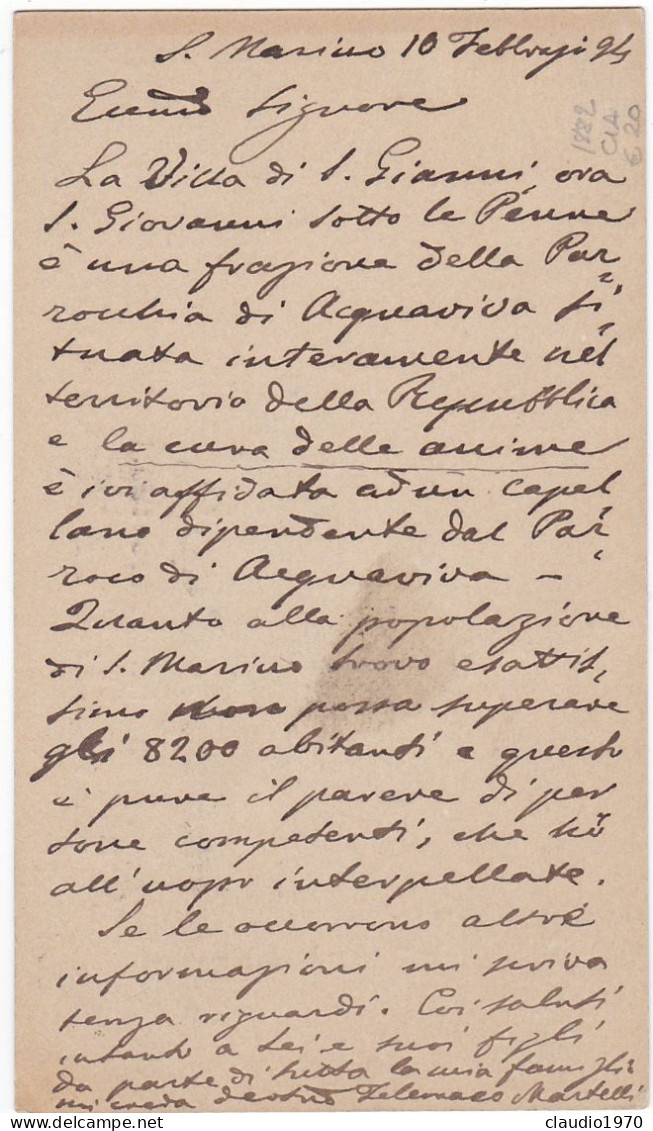 S. Marino 10 Febbraji 94
Ecc͞mo Signore
1882
CIA
€ 20
La Villa di S. Gianni, ora
S. Giovanni sotto le Penne
è una frazione della Par=
rocchia di Acquaviva si=
tuata interamente nel
territorio della Repubblica
e la cura delle anime
è ivi affidata ad un capel=
lano dipendente dal Par=
roco di Acquaviva –
Quanto alla popolazione
di S. Marino trovo esattis=
simo non possa superare
gli 8200 abitanti e questo
è pure il parere di per
sone competenti, che hò
all'uopo interpellate.
Se le occorrono altre
informazioni mi scriva
senza riguardi. Coi saluti
intanto a Lei e suoi figli
da parte di tutta la mia famiglia
mi creda Telemaco Martelli
claudio1970